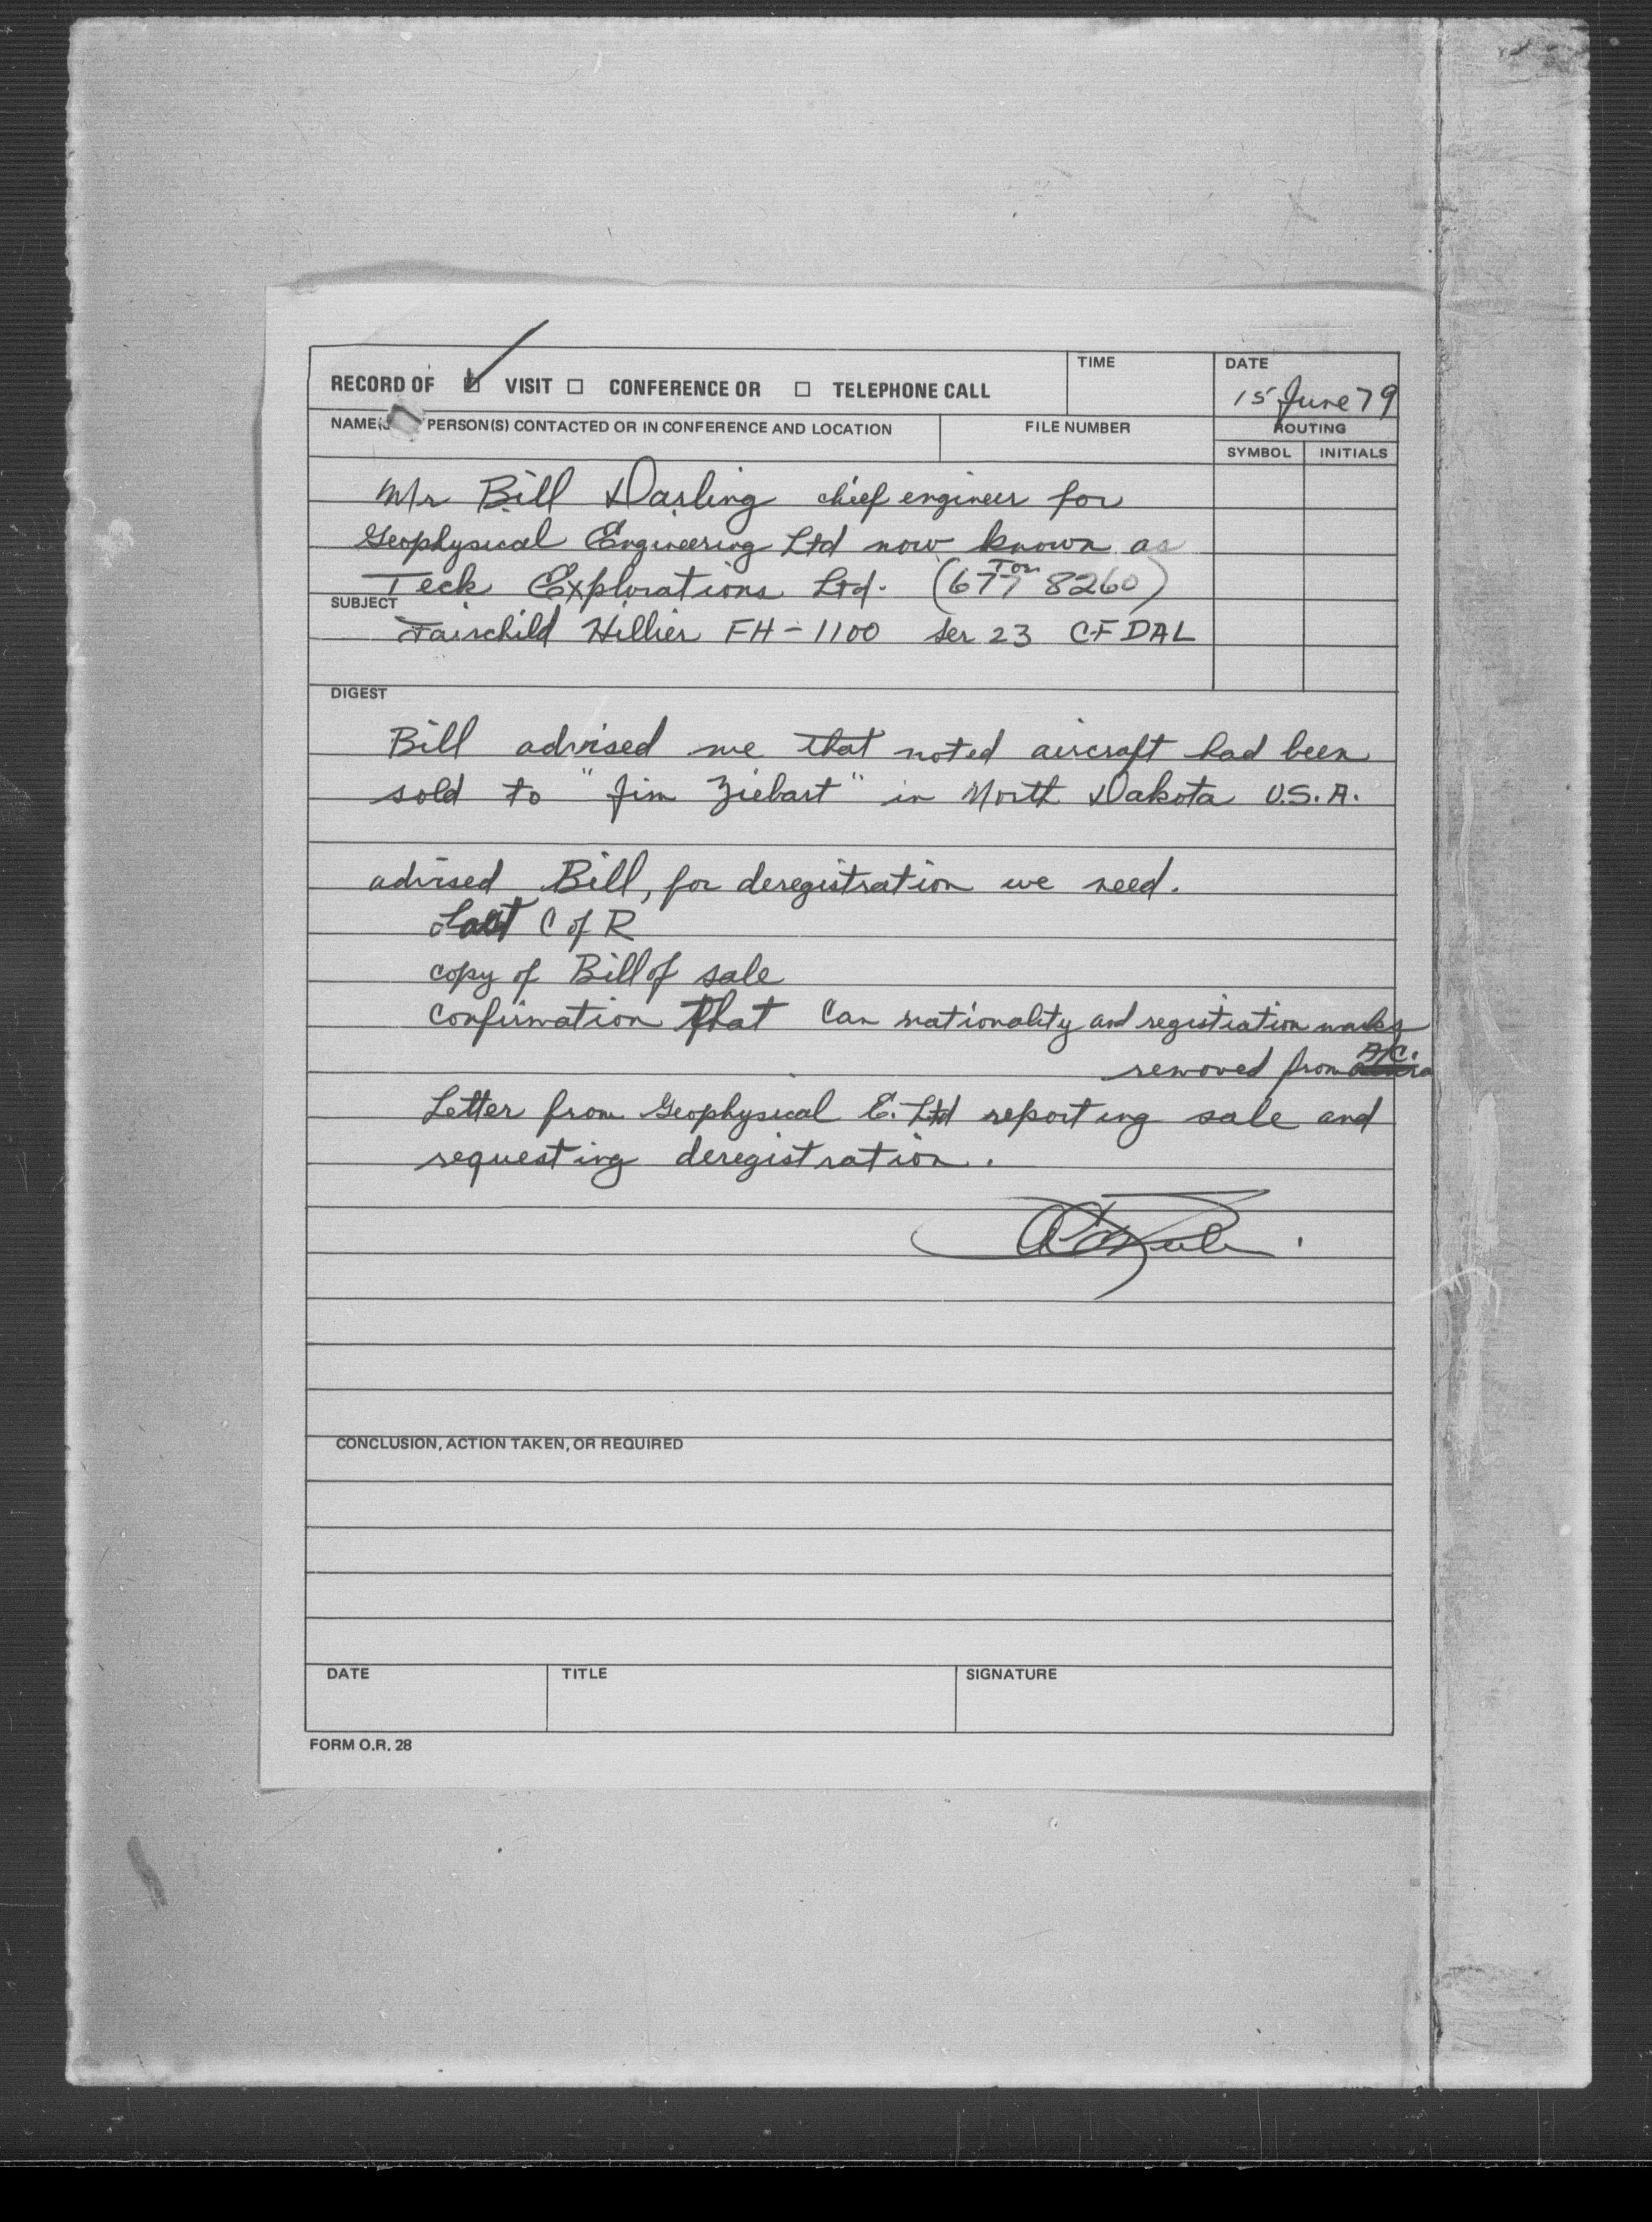 RECORD OF ☑ VISIT ☐ CONFERENCE OR ☐ TELEPHONE CALL
TIME
DATE
15 June 79
NAME PERSON(S) CONTACTED OR IN CONFERENCE AND LOCATION
FILE NUMBER
ROUTING
SYMBOL INITIALS
Mr Bill Darling chief engineer for
Geophysical Engineering Ltd now known as
Tor
Teck Explorations Ltd. (677 8260)
SUBJECT
Fairchild Hillier FH-1100 Ser 23 CF DAL
DIGEST
Bill advised me that noted aircraft had been
sold to "Jim Ziebart" in North Dakota U.S.A.
advised Bill, for deregistration we need.
Last C of R
copy of Bill of sale
Confirmation that Can nationality and registration marks
removed from A/C.
Letter from Geophysical E. Ltd reporting sale and
requesting deregistration.
CONCLUSION, ACTION TAKEN, OR REQUIRED
DATE TITLE SIGNATURE
FORM O.R. 28